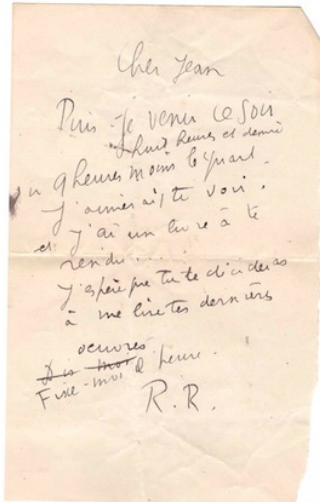 Cher Jean
Puis-je venir ce soir
huit heures et demie
ou 9 heures moins le quart.
J'aimerais te voir.
et j'ai un livre à te
rendre...
J'espère que tu te décideras
à me lire tes dernières
oeuvres
Dis-moi
Fixe-moi l'heure.
R.R.